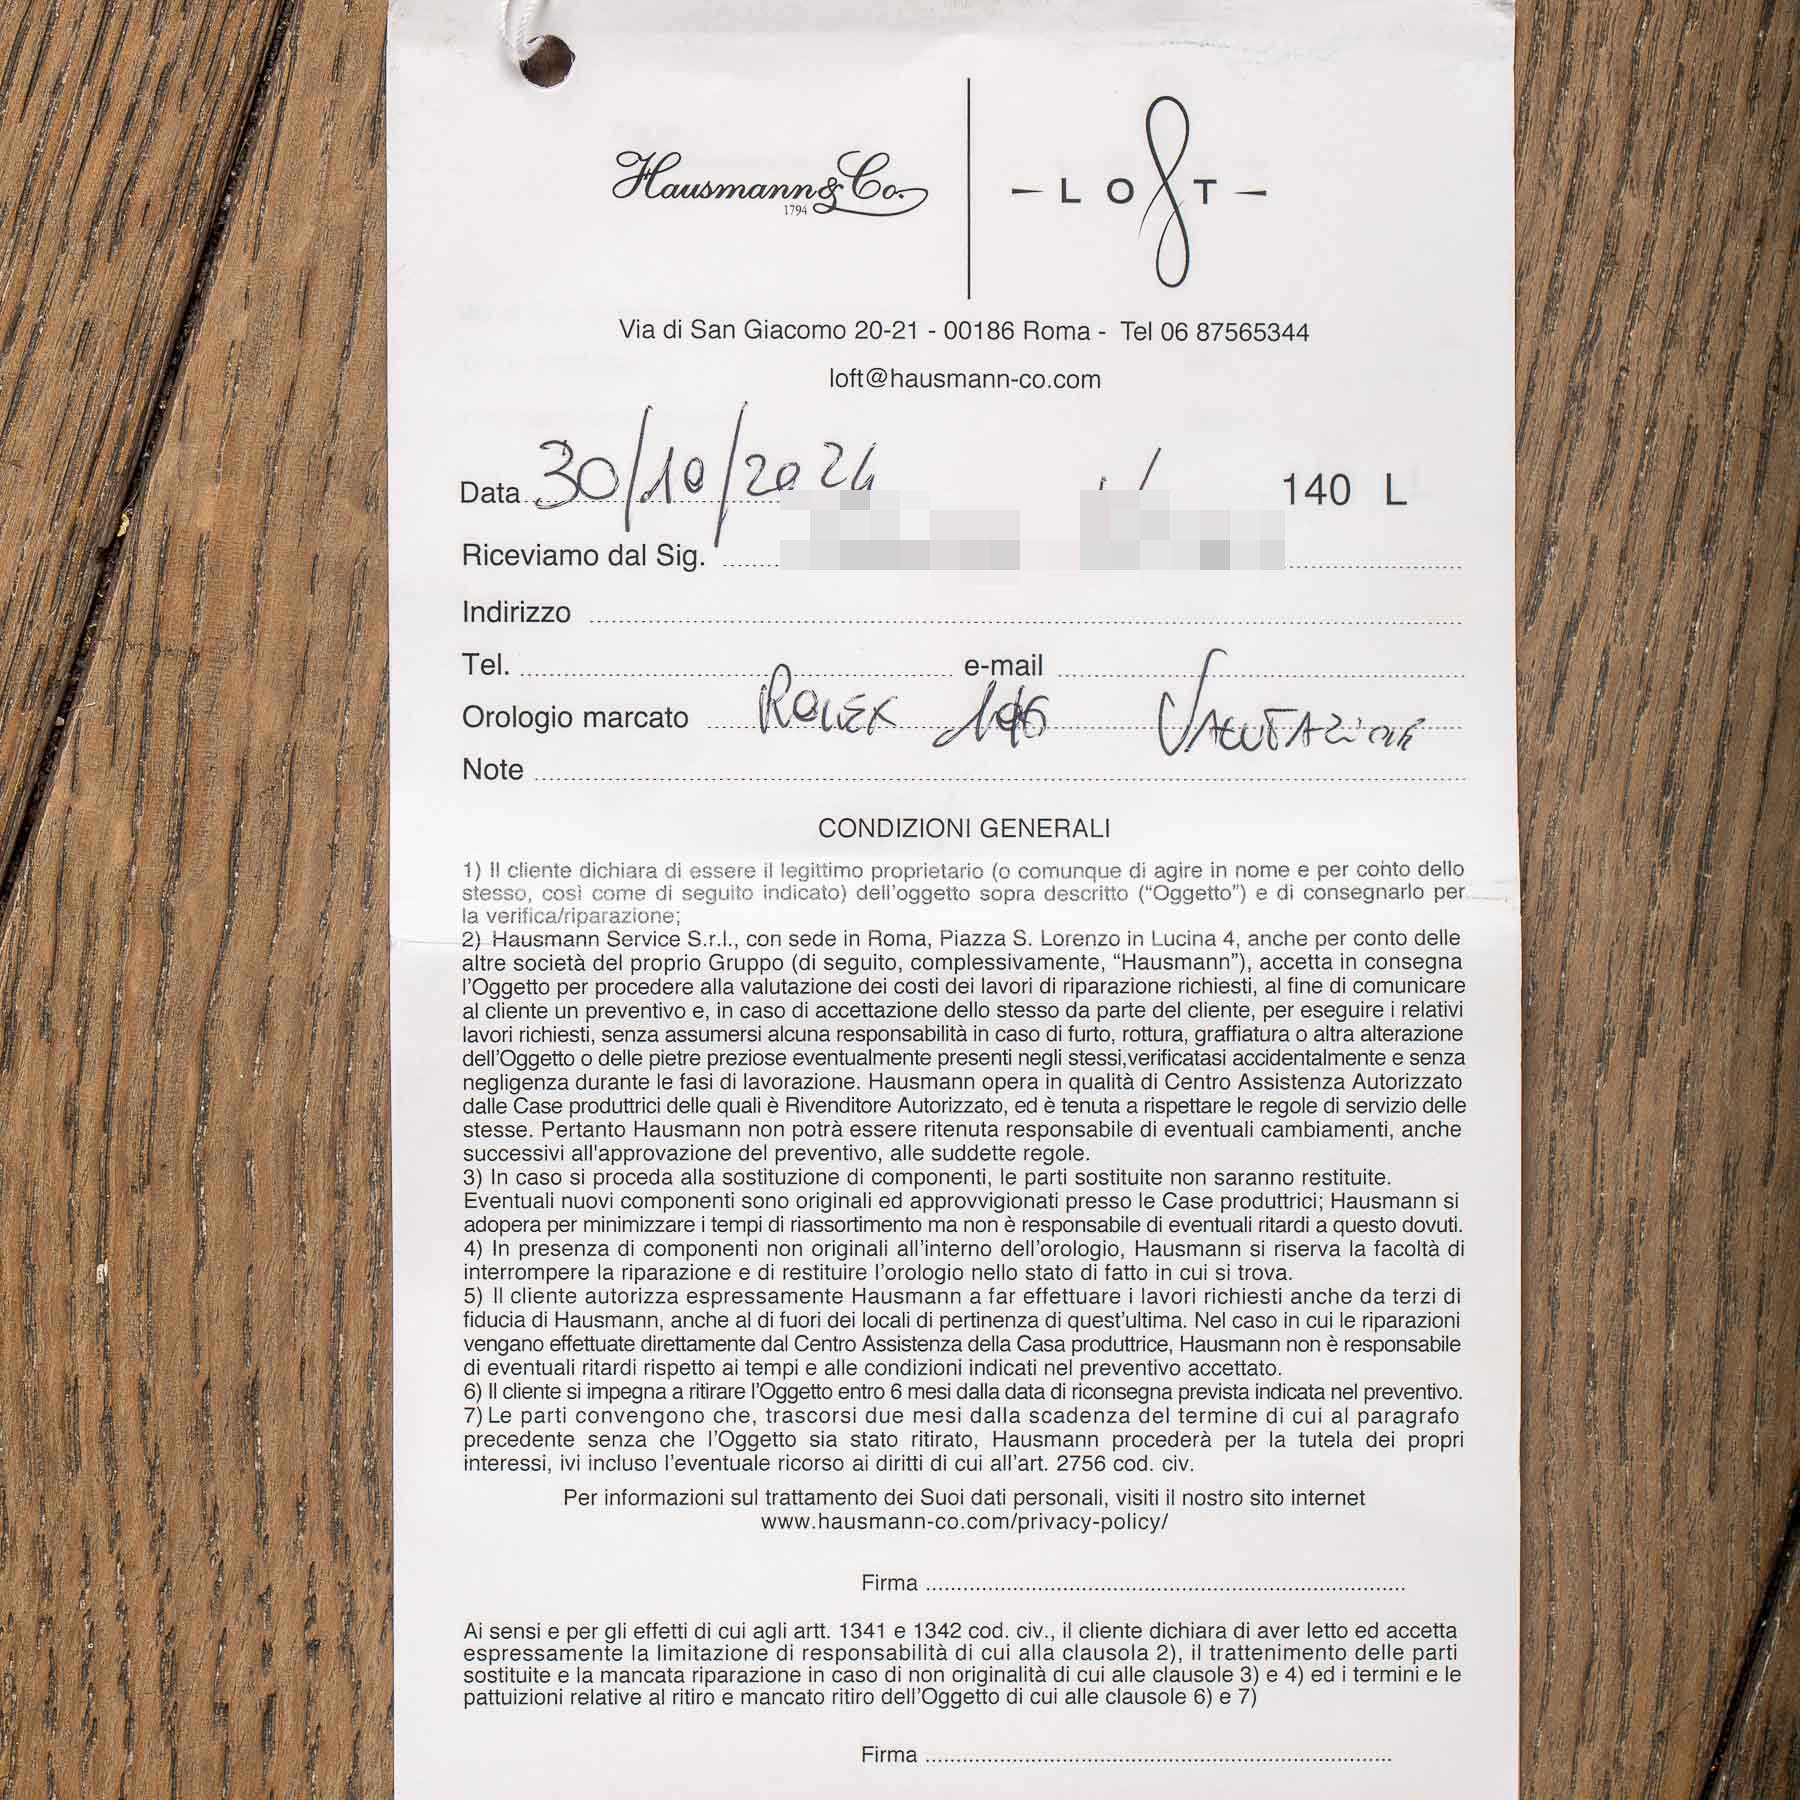 Hausmann & Co.
1794
LOFT
Via di San Giacomo 20-21 - 00186 Roma - Tel 06 87565344
loft@hausmann-co.com
Data 30/10/2024 140 L
Riceviamo dal Sig.
Indirizzo
Tel. e-mail
Orologio marcato Rolex VALUTAZIONE
Note
CONDIZIONI GENERALI
1) Il cliente dichiara di essere il legittimo proprietario (o comunque di agire in nome e per conto dello
stesso, così come di seguito indicato) dell'oggetto sopra descritto (“Oggetto”) e di consegnarlo per
la verifica/riparazione;
2) Hausmann Service S.r.l., con sede in Roma, Piazza S. Lorenzo in Lucina 4, anche per conto delle
altre società del proprio Gruppo (di seguito, complessivamente, “Hausmann”), accetta in consegna
l'Oggetto per procedere alla valutazione dei costi dei lavori di riparazione richiesti, al fine di comunicare
al cliente un preventivo e, in caso di accettazione dello stesso da parte del cliente, per eseguire i relativi
lavori richiesti, senza assumersi alcuna responsabilità in caso di furto, rottura, graffiatura o altra alterazione
dell'Oggetto o delle pietre preziose eventualmente presenti negli stessi,verificatasi accidentalmente e senza
negligenza durante le fasi di lavorazione. Hausmann opera in qualità di Centro Assistenza Autorizzato
dalle Case produttrici delle quali è Rivenditore Autorizzato, ed è tenuta a rispettare le regole di servizio delle
stesse. Pertanto Hausmann non potrà essere ritenuta responsabile di eventuali cambiamenti, anche
successivi all'approvazione del preventivo, alle suddette regole.
3) In caso si proceda alla sostituzione di componenti, le parti sostituite non saranno restituite.
Eventuali nuovi componenti sono originali ed approvvigionati presso le Case produttrici; Hausmann si
adopera per minimizzare i tempi di riassortimento ma non è responsabile di eventuali ritardi a questo dovuti.
4) In presenza di componenti non originali all'interno dell'orologio, Hausmann si riserva la facoltà di
interrompere la riparazione e di restituire l'orologio nello stato di fatto in cui si trova.
5) Il cliente autorizza espressamente Hausmann a far effettuare i lavori richiesti anche da terzi di
fiducia di Hausmann, anche al di fuori dei locali di pertinenza di quest'ultima. Nel caso in cui le riparazioni
vengano effettuate direttamente dal Centro Assistenza della Casa produttrice, Hausmann non è responsabile
di eventuali ritardi rispetto ai tempi e alle condizioni indicati nel preventivo accettato.
6) Il cliente si impegna a ritirare l'Oggetto entro 6 mesi dalla data di riconsegna prevista indicata nel preventivo.
7) Le parti convengono che, trascorsi due mesi dalla scadenza del termine di cui al paragrafo
precedente senza che l'Oggetto sia stato ritirato, Hausmann procederà per la tutela dei propri
interessi, ivi incluso l'eventuale ricorso ai diritti di cui all'art. 2756 cod. civ.
Per informazioni sul trattamento dei Suoi dati personali, visiti il nostro sito internet
www.hausmann-co.com/privacy-policy/
Firma
Ai sensi e per gli effetti di cui agli artt. 1341 e 1342 cod. civ., il cliente dichiara di aver letto ed accetta
espressamente la limitazione di responsabilità di cui alla clausola 2), il trattenimento delle parti
sostituite e la mancata riparazione in caso di non originalità di cui alle clausole 3) e 4) ed i termini e le
pattuizioni relative al ritiro e mancato ritiro dell'Oggetto di cui alle clausole 6) e 7)
Firma